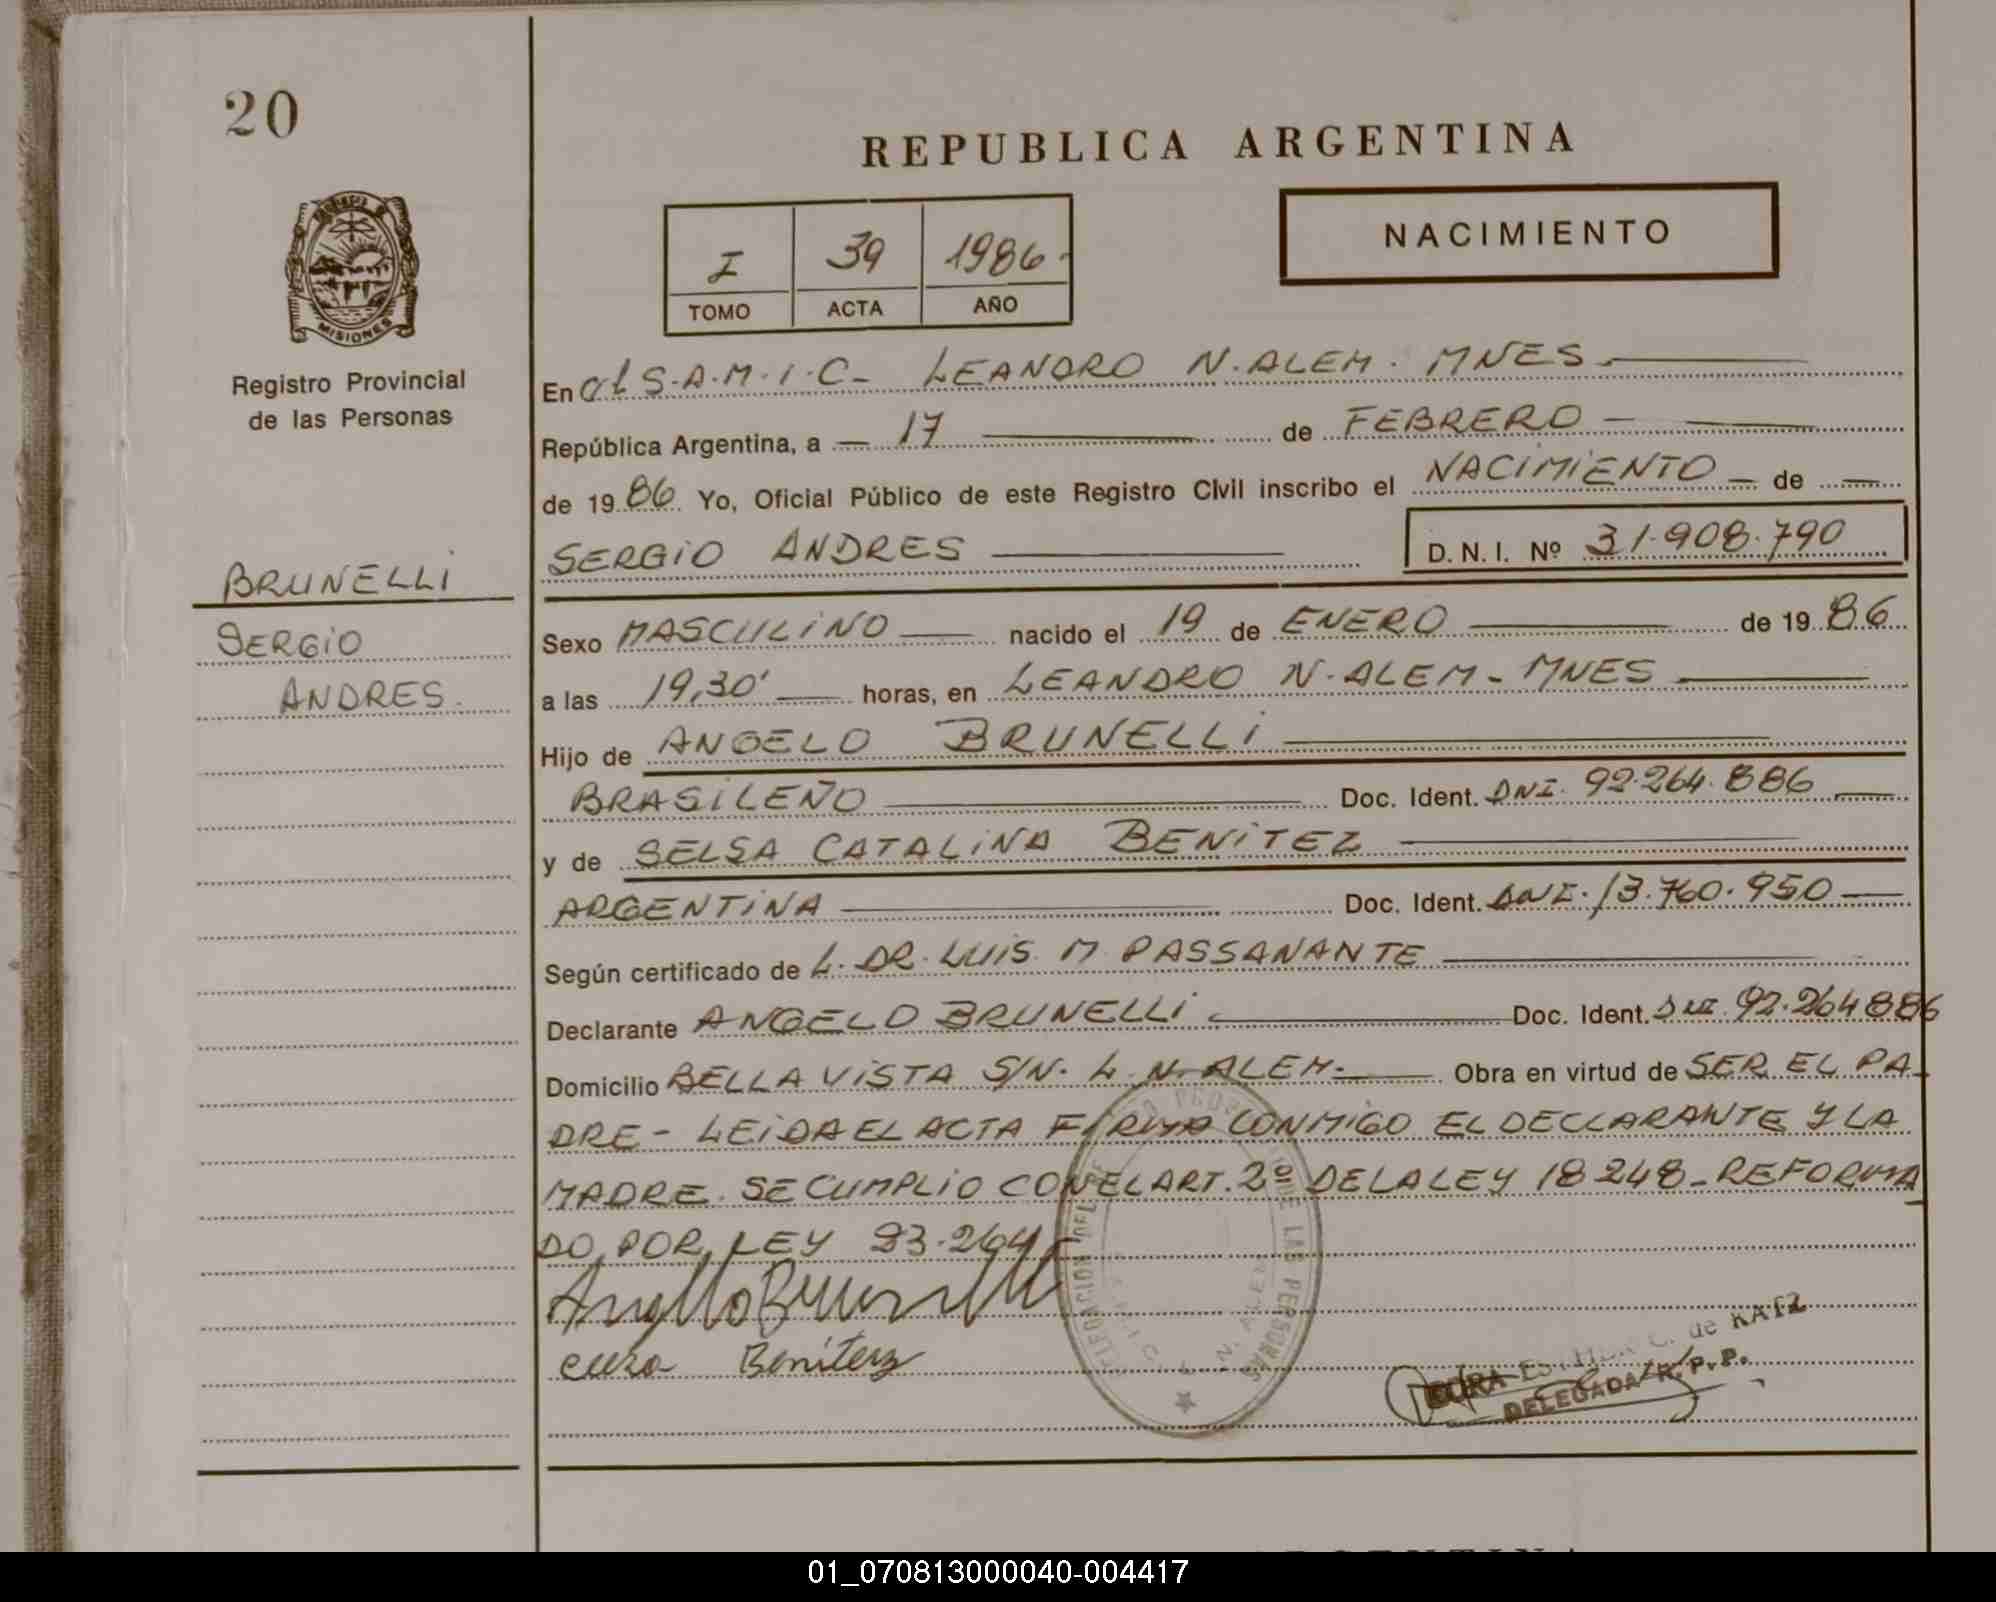 20
REPUBLICA ARGENTINA
NACIMIENTO
I 39 1986
TOMO ACTA AÑO
MISIONES
Registro Provincial
de las Personas
En S.A.M.I.C- LEANDRO N. ALEM. MNES.
República Argentina, a 17 de FEBRERO
de 1986 Yo, Oficial Público de este Registro Civil inscribo el NACIMIENTO de
SERGIO ANDRES D.N.I. Nº 31.908.790
BRUNELLI
SERGIO
ANDRES.
Sexo MASCULINO nacido el 19 de ENERO de 1986
a las 19,30' horas, en LEANDRO N. ALEM - MNES
Hijo de ANGELO BRUNELLI
BRASILEÑO Doc. Ident. DNI. 92.264.886
y de SELSA CATALINA BENITEZ
ARGENTINA Doc. Ident. DNI. 13.760.950
Según certificado de L. DR. LUIS M. PASSANANTE
Declarante ANGELO BRUNELLI Doc. Ident. DNI. 92.264886
Domicilio BELLA VISTA S/N. L. N. ALEM- Obra en virtud de SER EL PA
DRE - LEIDA EL ACTA FIRMA CONMIGO EL DECLARANTE Y LA
MADRE. SE CUMPLIO CON EL ART. 2º DE LA LEY 18248 - REFORMA
DO POR LEY 23.264
Benitez
DELEGACION LAS PERSONAS
DORA ESTHER C. de KATZ
DELEGADA R.P.P.
01_070813000040-004417